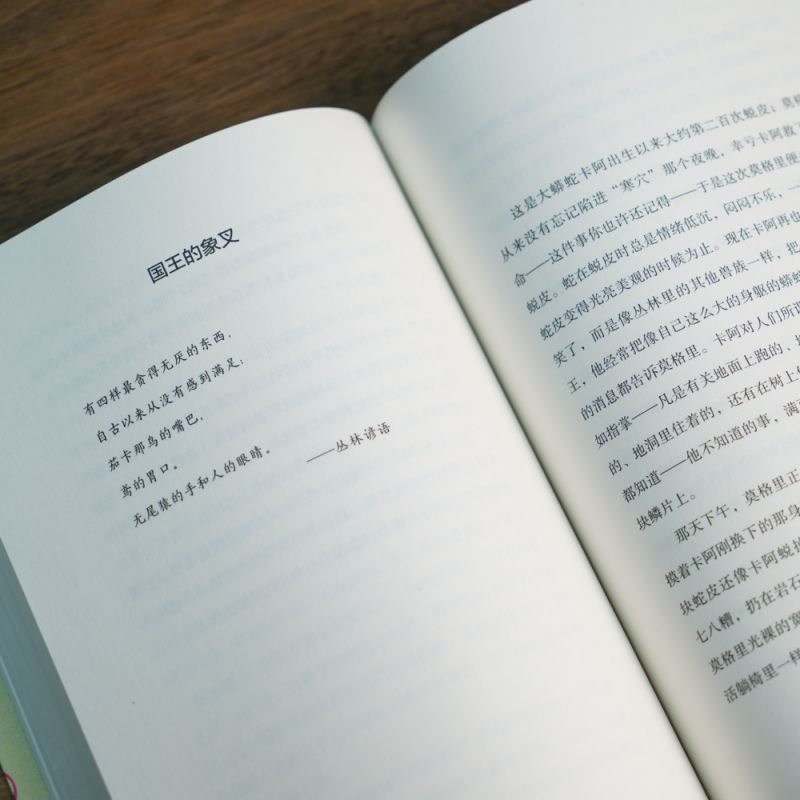 国王的象叉
有四样最贪得无厌的东西，
自古以来从没有感到满足：
茄卡那鸟的嘴巴，
鸢的胃口。
无尾猿的手和人的眼睛。
——丛林谚语
这是大蟒蛇卡阿出生以来大约第二百次蜕皮；莫格
从来没有忘记陷进“寒穴”那个夜晚，幸亏卡阿救了
命——这件事你也许还记得——于是这次莫格里便
蜕皮。蛇在蜕皮时总是情绪低沉，闷闷不乐，一
蛇皮变得光亮美观的时候为止。现在卡阿再也
笑了，而是像丛林里的其他兽族一样，把
王，他经常把像自己这么大的身躯的蟒蛇
的消息都告诉莫格里。卡阿对人们所谓
如指掌——凡是有关地面上跑的、
的、地洞里住着的，还有在树上
都知道——他不知道的事，满
块鳞片上。
那天下午，莫格里正
摸着卡阿刚换下的那身
块蛇皮还像卡阿蜕
七八糟，扔在岩石
莫格里光裸的宽
活躺椅里一样